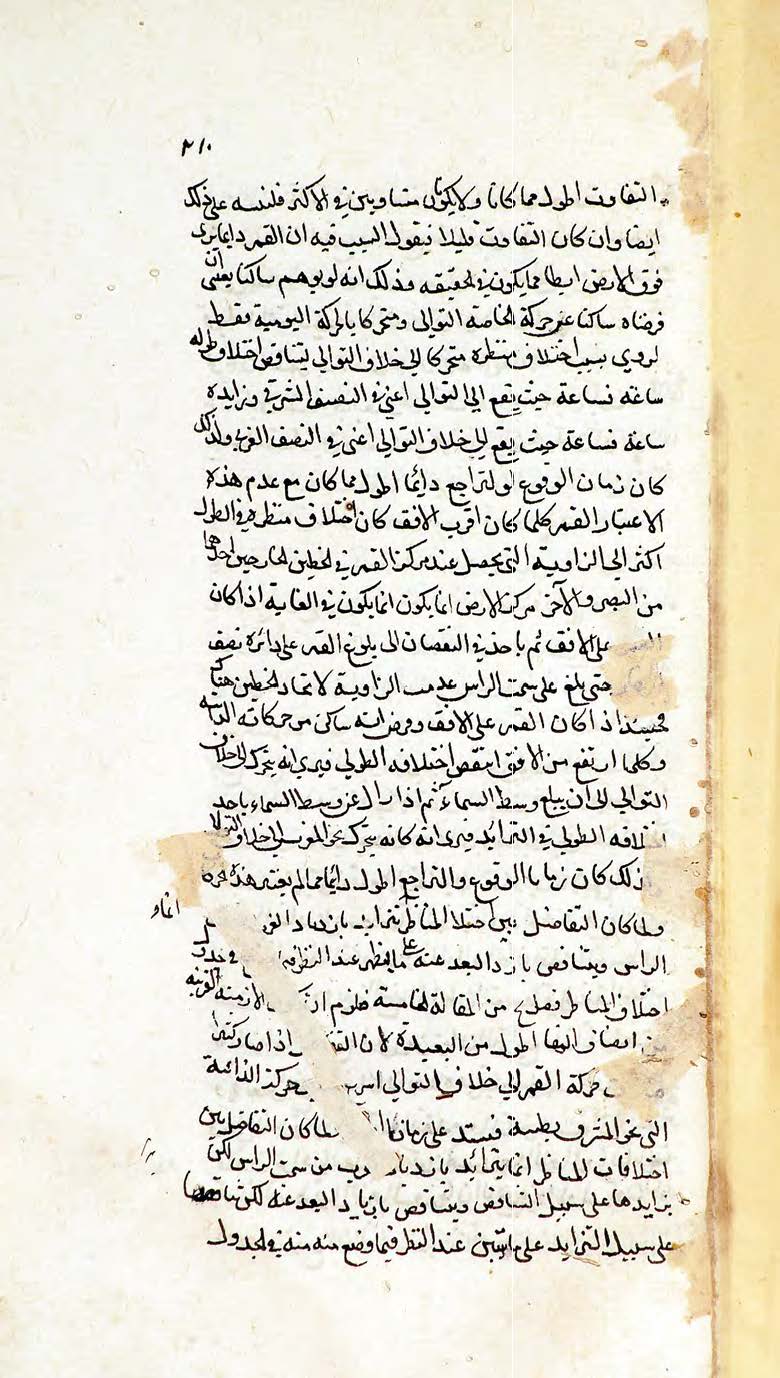 ٢١٠
التفاوت اطول مما كانا ولا يكونان متساويين في الاكثر فلننبه على ذلك
ايضا وان كان التفاوت قليلا فيقول السبب فيه ان القمر دايما يرى
فوق الارض ابطا مما يكون في الحقيقه وذلك انه لو يوهم ساكنا يعنى ان
فرضناه ساكنا عن حركة الخاصة التوالى ومتحركا بالحركة اليومية فقط
لروى بسبب اختلاف منظره متحركا الى خلاف التوالى لتناقص اختلاف طوله
ساعة فساعة حيث يقع الى التوالى اعنى في النصف الشرقى وتزايده
ساعة فساعة حيث يقع الى خلاف التوالى اعنى في النصف الغربى ولذلك
كان زمان الوقوع والتراجع دايما اطول مما كان مع عدم هذه
الاعتبار القمر كلما كان اقرب الافق كان اختلاف منظره في الطول
اكثر الى الزاوية التى يحصل عند مركز القمر في الخطين الخارجين احدها
من البصر والآخر مركز الارض انما يكون انما يكون في الغاية اذا كان
على الافق ثم ياخذ في النقصان الى بلوغ القمر على دائرة نصف
حتى بلغ على سمت الراس عدمت الزاوية لاتحاد الخطين هناك
فحينئذ اذا كان القمر على الافق وفرض انه ساكن من حركاته الذاتيه
وكلما ارتفع من الافق انتقص اختلافه الطولى فيرى انه يتحرك الى خلاف
التوالى الى ان يبلغ وسط السماء ثم اذا زال عن وسط السماء ياخذ
اختلافه الطولى في التزايد فيرى انه كانه يتحرك نحو المغرب الى خلاف التوالى
ذلك كان زمانا الوقوع والتراجع اطول دايما مما لم يعتبر هذه
ولما كان التفاضل بين اختلاف المناظر يتزايد بازدياد
الراس ويتناقص بازدياد البعد عنه على ما يظهر عند النظر في جدول
اختلاف المناظر من المقالة الخامسة فلزم الازمنه القريبه
ايضا اطول من البعيدة لان اذا صار
حركة القمر الى خلاف التوالى حركته الذاتية
التى نحو المشرق بطيئة فيمتد على زمان ولما كان التفاضل بين
اختلافات المناظر انما يتزايد بازدياد من سمت الراس لكن
تزايدها على سبيل التناقص ويتناقص بازدياد البعد عنه لكن تناقصها
على سبيل التزايد على ما تبين عند النظر فيما وضع منه في الجدول